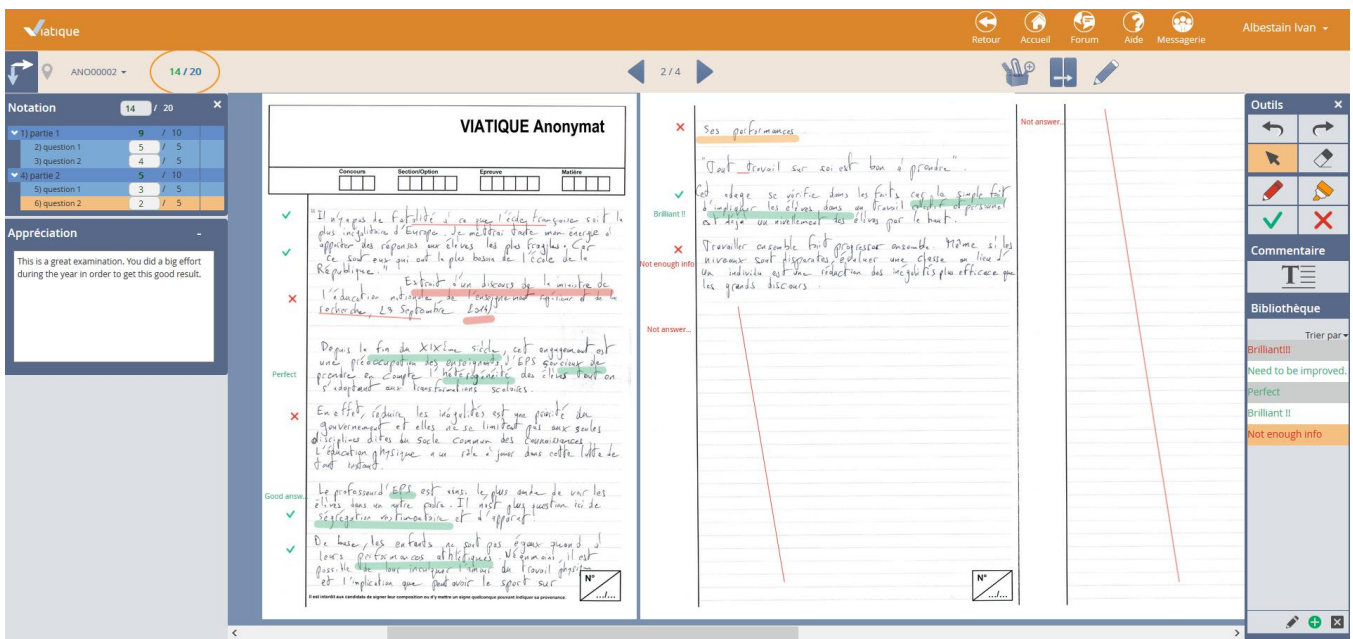 Viatique
Retour
Accueil
Forum
Aide
Messagerie
Albestain Ivan
ANO00002
14 / 20
2 / 4
Notation 14 / 20 ×
1) partie 1 9 / 10
2) question 1 5 / 5
3) question 2 4 / 5
4) partie 2 5 / 10
5) question 1 3 / 5
6) question 2 2 / 5
Appréciation -
This is a great examination. You did a big effort
during the year in order to get this good result.
VIATIQUE Anonymat
Concours Section/Option Epreuve Matière
"Il n'y a pas de fatalité à ce que l'école française soit la
plus inégalitaire d'Europe. Je mettrai toute mon énergie à
apporter des réponses aux élèves les plus fragiles. Car
ce sont eux qui ont le plus besoin de l'école de la
République."
Extrait d'un discours de la ministre de
l'éducation nationale de l'enseignement supérieur et de la
recherche, 23 Septembre 2014)
Depuis la fin du XIXème siècle, cet engagement est
une préoccupation des enseignants d'EPS soucieux de
Perfect
prendre en compte l'hétérogénéité des élèves tout en
s'adaptant aux transformations scolaires.
En effet, réduire les inégalités est une priorité du
gouvernement et elles ne se limitent pas aux seules
disciplines dites du socle commun des connaissances.
L'éducation physique a un rôle à jouer dans cette lutte de
tout instant.
Good answ...
Le professeur d'EPS est ainsi le plus de voir les
élèves dans un autre cadre. Il n'est plus question ici de
ségrégation vestimentaire et d'apparat.
De base, les enfants ne sont pas égaux quand à
leurs performances athlétiques. Néanmoins, il est
possible de leur inculquer l'amour du travail physique
et l'implication que peut avoir le sport sur
N°
.../...
Il est interdit aux candidats de signer leur composition ou d'y mettre un signe quelconque pouvant indiquer sa provenance.
Ses performances.
"Tout travail sur soi est bon à prendre"
Cet adage se vérifie dans les faits car la simple fait
Brilliant !!
d'impliquer les élèves dans un travail collectif et personnel
est déjà un nivellement des élèves par le haut.
Travailler ensemble fait progresser ensemble. Même si les
Not enough info
niveaux sont disparates, évaluer une classe en lieu d'
un individu est une réduction des inégalités plus efficace que
les grands discours.
Not answer...
N°
.../...
Not answer...
Outils ×
Commentaire
T
Bibliothèque
Trier par
Brilliant!!!
Need to be improved.
Perfect
Brilliant !!
Not enough info